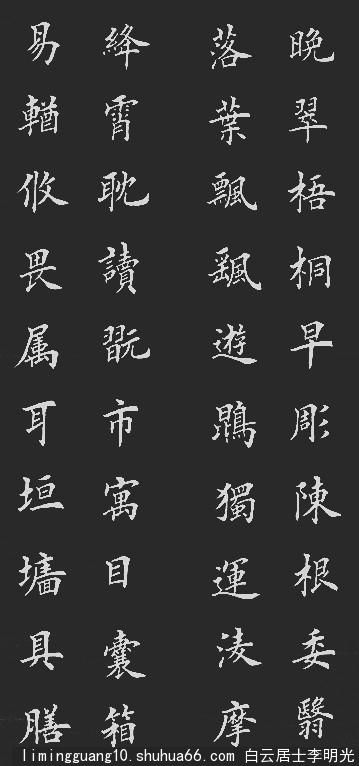 晚翠梧桐早彫陳根委翳
落葉飄颻遊鵾獨運淩摩
絳霄耽讀翫市寓目囊箱
易輶攸畏属耳垣墻具膳
limingguang10.shuhua66.com 白云居士李明光